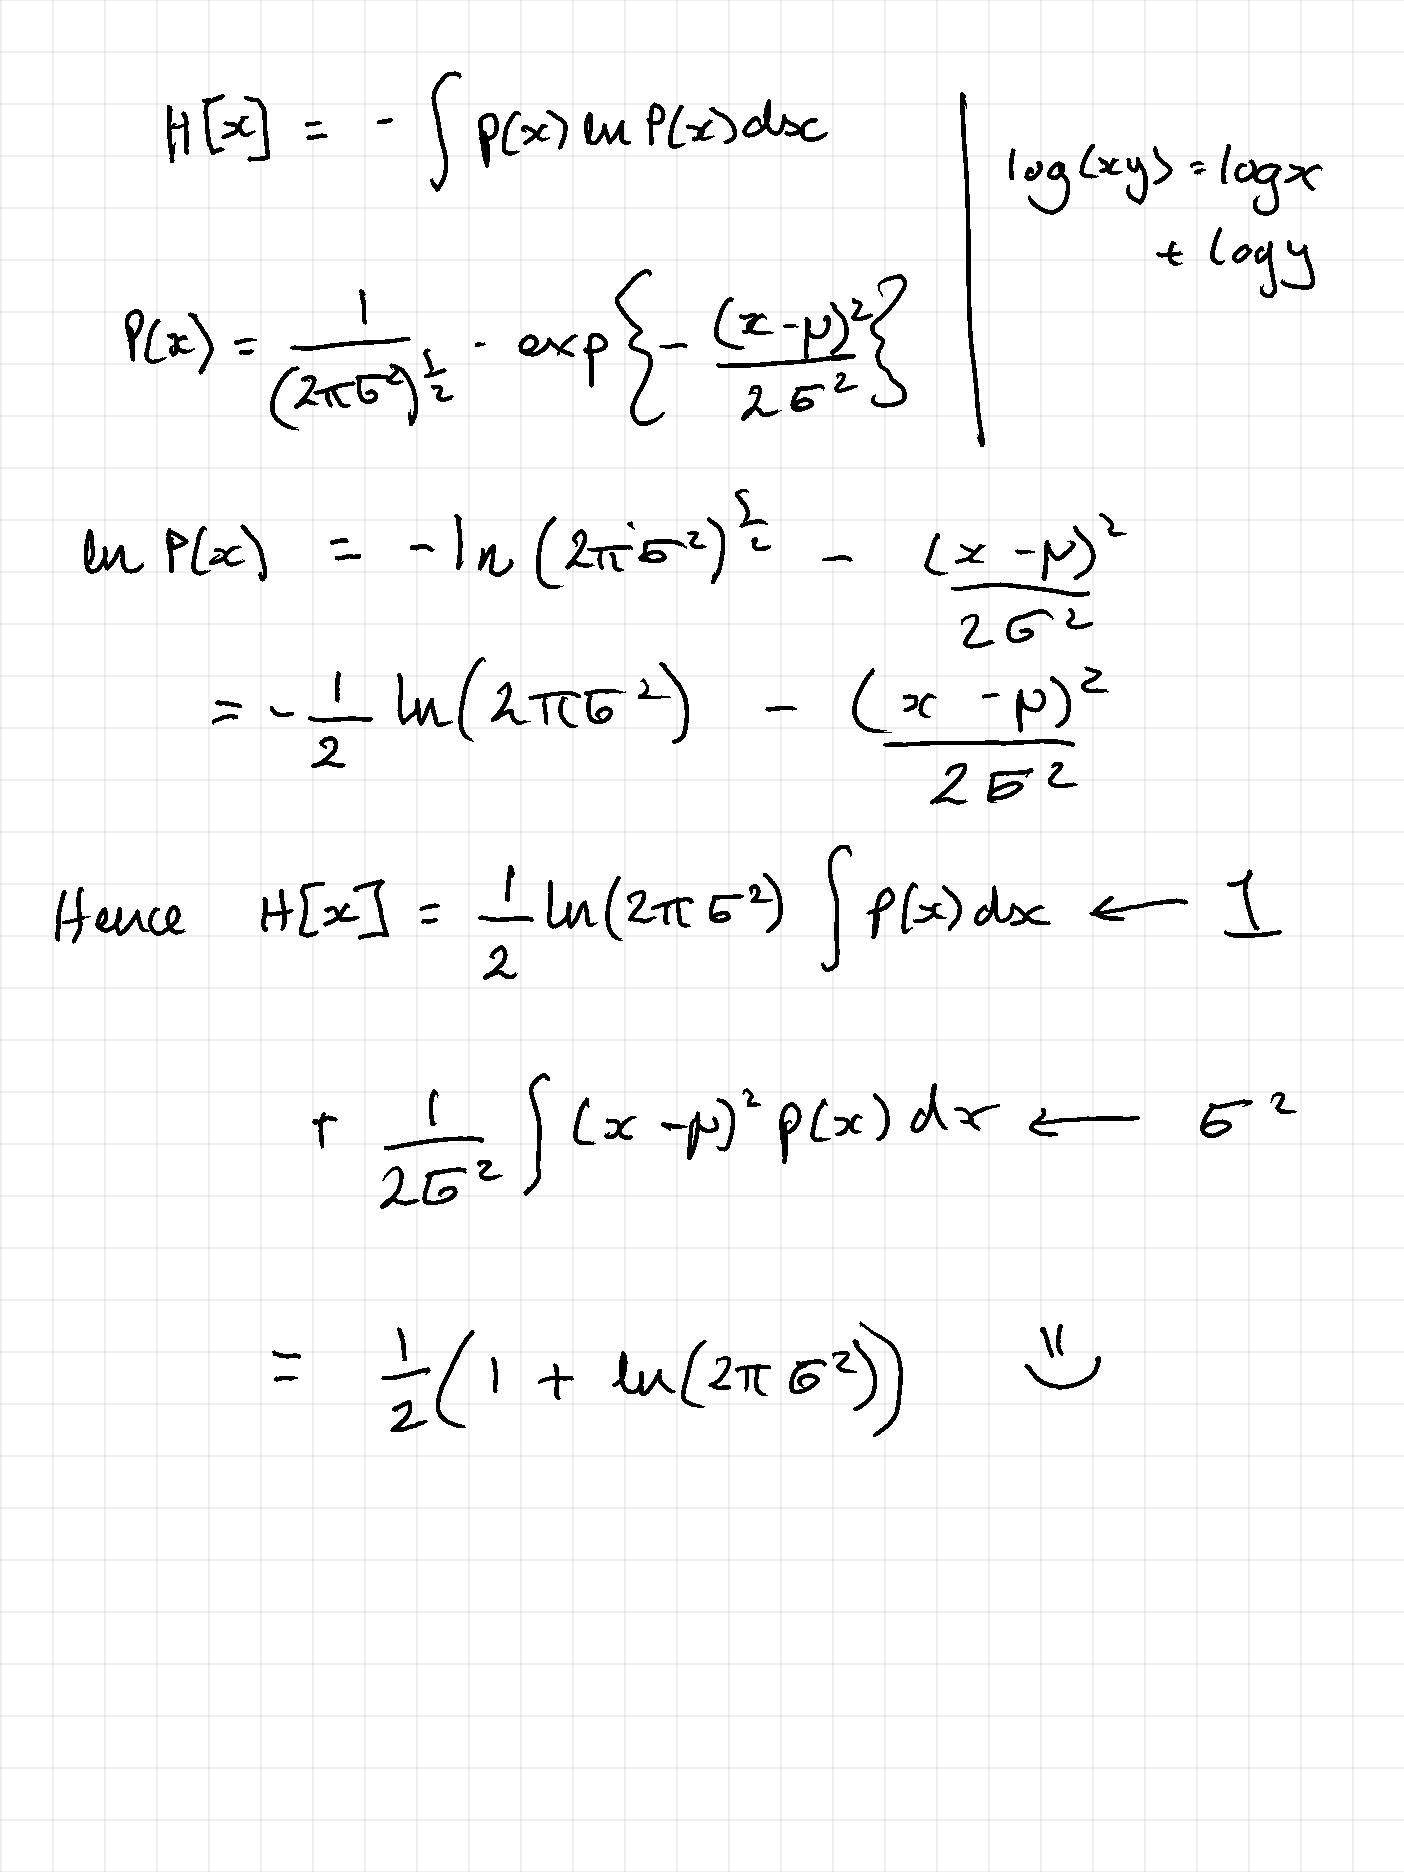 H[x] = - ∫ p(x) ln P(x) dx
log(xy) = log x
+ log y
P(x) = 1/(2πσ²)^½ · exp{ - (x-μ)²/2σ² }
ln P(x) = - ln (2πσ²)^½ - (x-μ)²/2σ²
= - 1/2 ln(2πσ²) - (x-μ)²/2σ²
Hence H[x] = 1/2 ln(2πσ²) ∫ p(x) dx ← 1
+ 1/2σ² ∫ (x-μ)² p(x) dx ← σ²
= 1/2 (1 + ln(2πσ²))